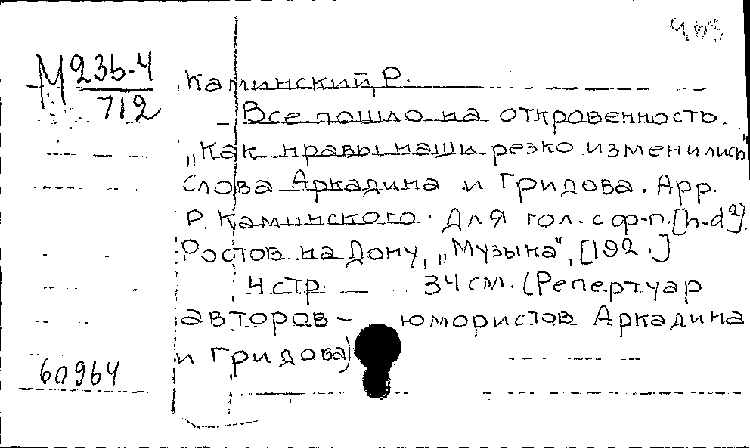 М 236-4
712
Каминский, Р.
Все пошло на откровенность.
„Как нравы наши резко изменились"
Слова Аркадина и Гридова. Арр.
Р. Каминского. Для гол. с ф-п. [h-d²].
Ростов на Дону, „Музыка", [192 .]
4 стр. — 34 см. (Репертуар
авторов - юмористов Аркадина
и Гридова)
60964